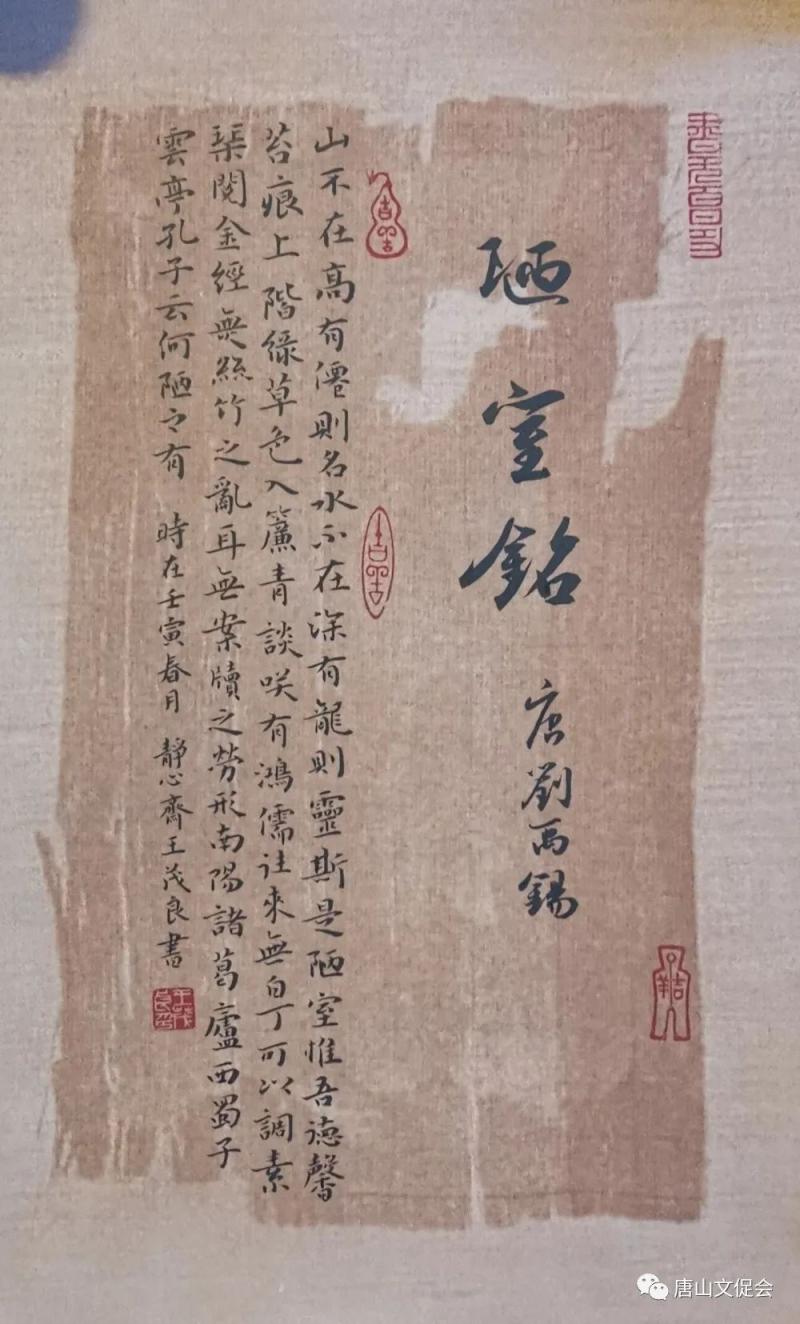 陋室銘 唐劉禹錫
山不在高有僊則名水不在深有龍則靈斯是陋室惟吾德馨
苔痕上階綠草色入簾青談咲有鴻儒往來無白丁可以調素
琹閱金經無絲竹之亂耳無案牘之勞形南陽諸葛廬西蜀子
雲亭孔子云何陋之有 時在壬寅春月 靜心齋王茂良書
王茂良印
唐山文促会